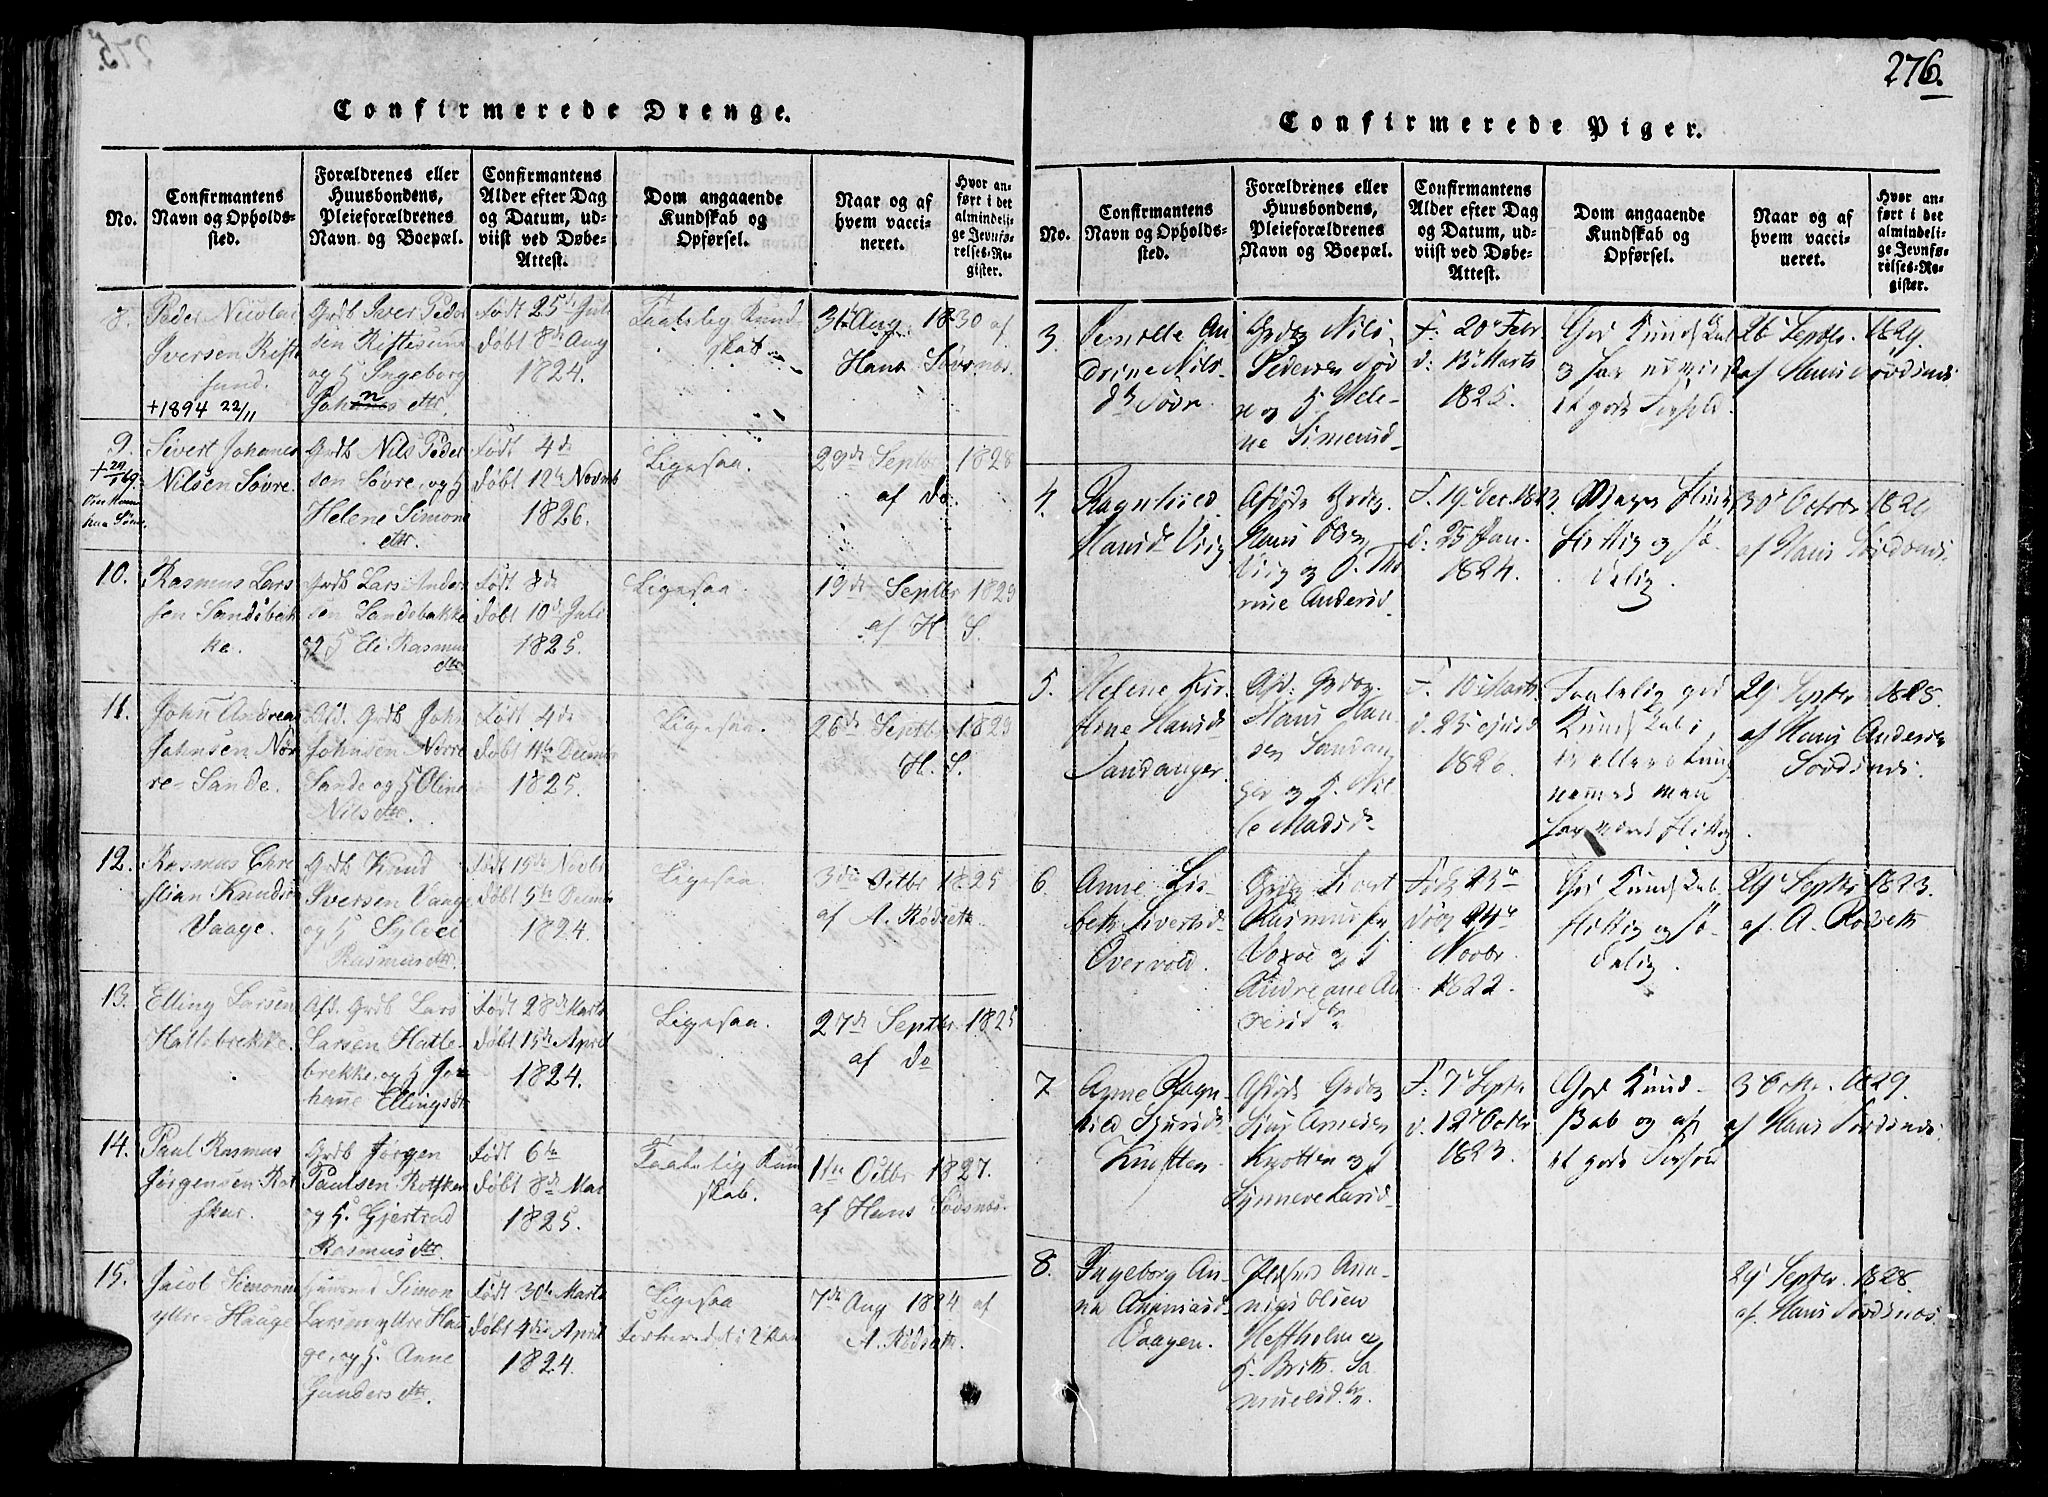 276.
Confirmerede Drenge.
No.
Confirmantens
Navn og Opholds-
sted.
Forældrenes eller
Huusbondens,
Pleieforældrenes
Navn og Boepæl.
Confirmantens
Alder efter Dag
og Datum, ud-
viist ved Døbe-
Attest.
Dom angaaende
Kundskab og
Opførsel.
Naar og af
hvem vacci-
neret.
Hvor an-
ført i det
almindeli-
ge Jevnfø-
relses-Re-
gister.
8.
Peder Nicolai
Iversen Rifte
sund.
+1894 22/11
Grdb Iver Peder
sen Riftesund
og H Ingeborg
Født 25de Juli
døbt 8de Aug
1824.
Taalelig Kund-
skab
31te Aug. 1830 af
Hans Sørsnes.
9.
Sivert Johanes
Nilsen Søvre.
Grdb Nils Peder
sen Søvre, og H
Helene Simons
dtr.
Født 4de
døbt 12te Novmb
1826.
Ligesaa.
29de Septbr 1828
af do
10.
Rasmus Lars
sen Sandsbak
ke.
Grdb Lars Anders
sen Sandsbakke
og H Eli Rasmus
dtr
Født 8de
døbt 10de Juli
1825.
Ligesaa.
19de Septbr 1829
af H. S.
11.
John Andreas
Johnsen Nør
re-Sande.
Afd. Grdb John
Johnsen Nørre
Sande og H Oline
Nilsdtr.
Født 4de
døbt 11te Decmbr
1825.
Ligesaa.
26de Septbr 1829
H. S.
12.
Rasmus Chri
stian Knudsen
Vaage.
Grdb Knud
Iversen Vaage
og H Sylvei
Rasmusdtr.
Født 15de Novbr
døbt 5te Decmbr
1824.
Ligesaa.
3die Octbr 1825
af A. Rødseth
13.
Elling Larsen
Hattebrekke.
Afd. Grdb Lars
Larsen Hatle-
brekke, og H Jo-
hane Ellingsdtr
Født 28de Marts
døbt 15de April
1824.
Ligesaa.
27de Septbr. 1825
af do
14.
Paul Rasmus
Jørgensen Rot
skar.
Grdb Jørgen
Paulsen Rotskar
og H. Gjertrud
Rasmusdtr.
Født 6te
døbt 8de Mai
1825.
Taalelig Kun
skab.
11te Octbr 1827.
af Hans Sødsnæs.
15.
Jacob Simonsen
yttre Hauge
Simon
Larsen yttre Hau
ge, og H. Anne
Gundersdtr.
Født 30te Marts
døbt 4de April
1824.
Ligesaa
7de Aug 1824 af
A. Rødseth.
Confirmerede Piger.
No.
Confirmantens
Navn og Opholds-
sted.
Forældrenes eller
Huusbondens,
Pleieforældrenes
Navn og Boepæl.
Confirmantens
Alder efter Dag
og Datum, ud-
viist ved Døbe-
Attest.
Dom angaaende
Kundskab og
Opførsel.
Naar og af
hvem vacci-
neret.
Hvor an-
ført i det
almindeli-
ge Jevnfø-
relses-Re-
gister.
3.
Pernille An
drine Nils
dtr Søvr.
Grdbr Nils
Pedersen Søv
re og H Hele-
ne Simensd-
F. 20de Febr
d. 13de Marts
1825.
God Kundskab
og har udviist
et godt Forhold.
26 Septbr. 1829.
af Hans Sørdsnes
4.
Ragnhild
Hansd Viig
Afdøde Grdbr.
Hans Olsen
Viig og H. Tho
rine Andersd.
F. 19de Dec. 1823.
d. 25 Jan.
1824.
Megen Kundsk.
flittig og sæ-
delig.
30te Octobr
af Hans Sørdsnes.
5.
Helene Kir-
stine Hansd.
Vandanger.
Afd. Grdbr.
Hans Han-
sen Sandan-
ger og H. Nil-
le Madsd.
F. 10de Marts
d. 25 ejusd
1826.
Taalelig god
Kundskab i
29 Septbr 1828.
af Hans Andersen
Sørdsnes.
6.
Anne Lis-
beth Sivertsd.
Overvold.
Grdbr Sivert
Rasmussen
Voxøe og H
Andreane An
dersd.
Født 23de
døbt 24de
Novbr.
1822.
God Kundskab
flittig og sæ-
delig.
29de Septbr 1823.
af A. Rødseth
7
Anne Ragn-
hild Sjursd.
Knotten.
Afdøde Grdbr
Sjur Arnesen
Knotten og H
Synneve Larsd.
F. 7de Septbr
d. 12de Octbr
1823.
God Kund-
skab og af
et godt Forhold
3 Octbr. 1829.
af Hans Sørdsnes.
8.
Ingeborg An-
ne Ananiasd.
Vaagen.
Pladsmd Ann-
nias Olsen
Heftholm og
H. Brith. Sa-
muelsd.
29 Septbr. 1828.
af Hans Sørdsnæs